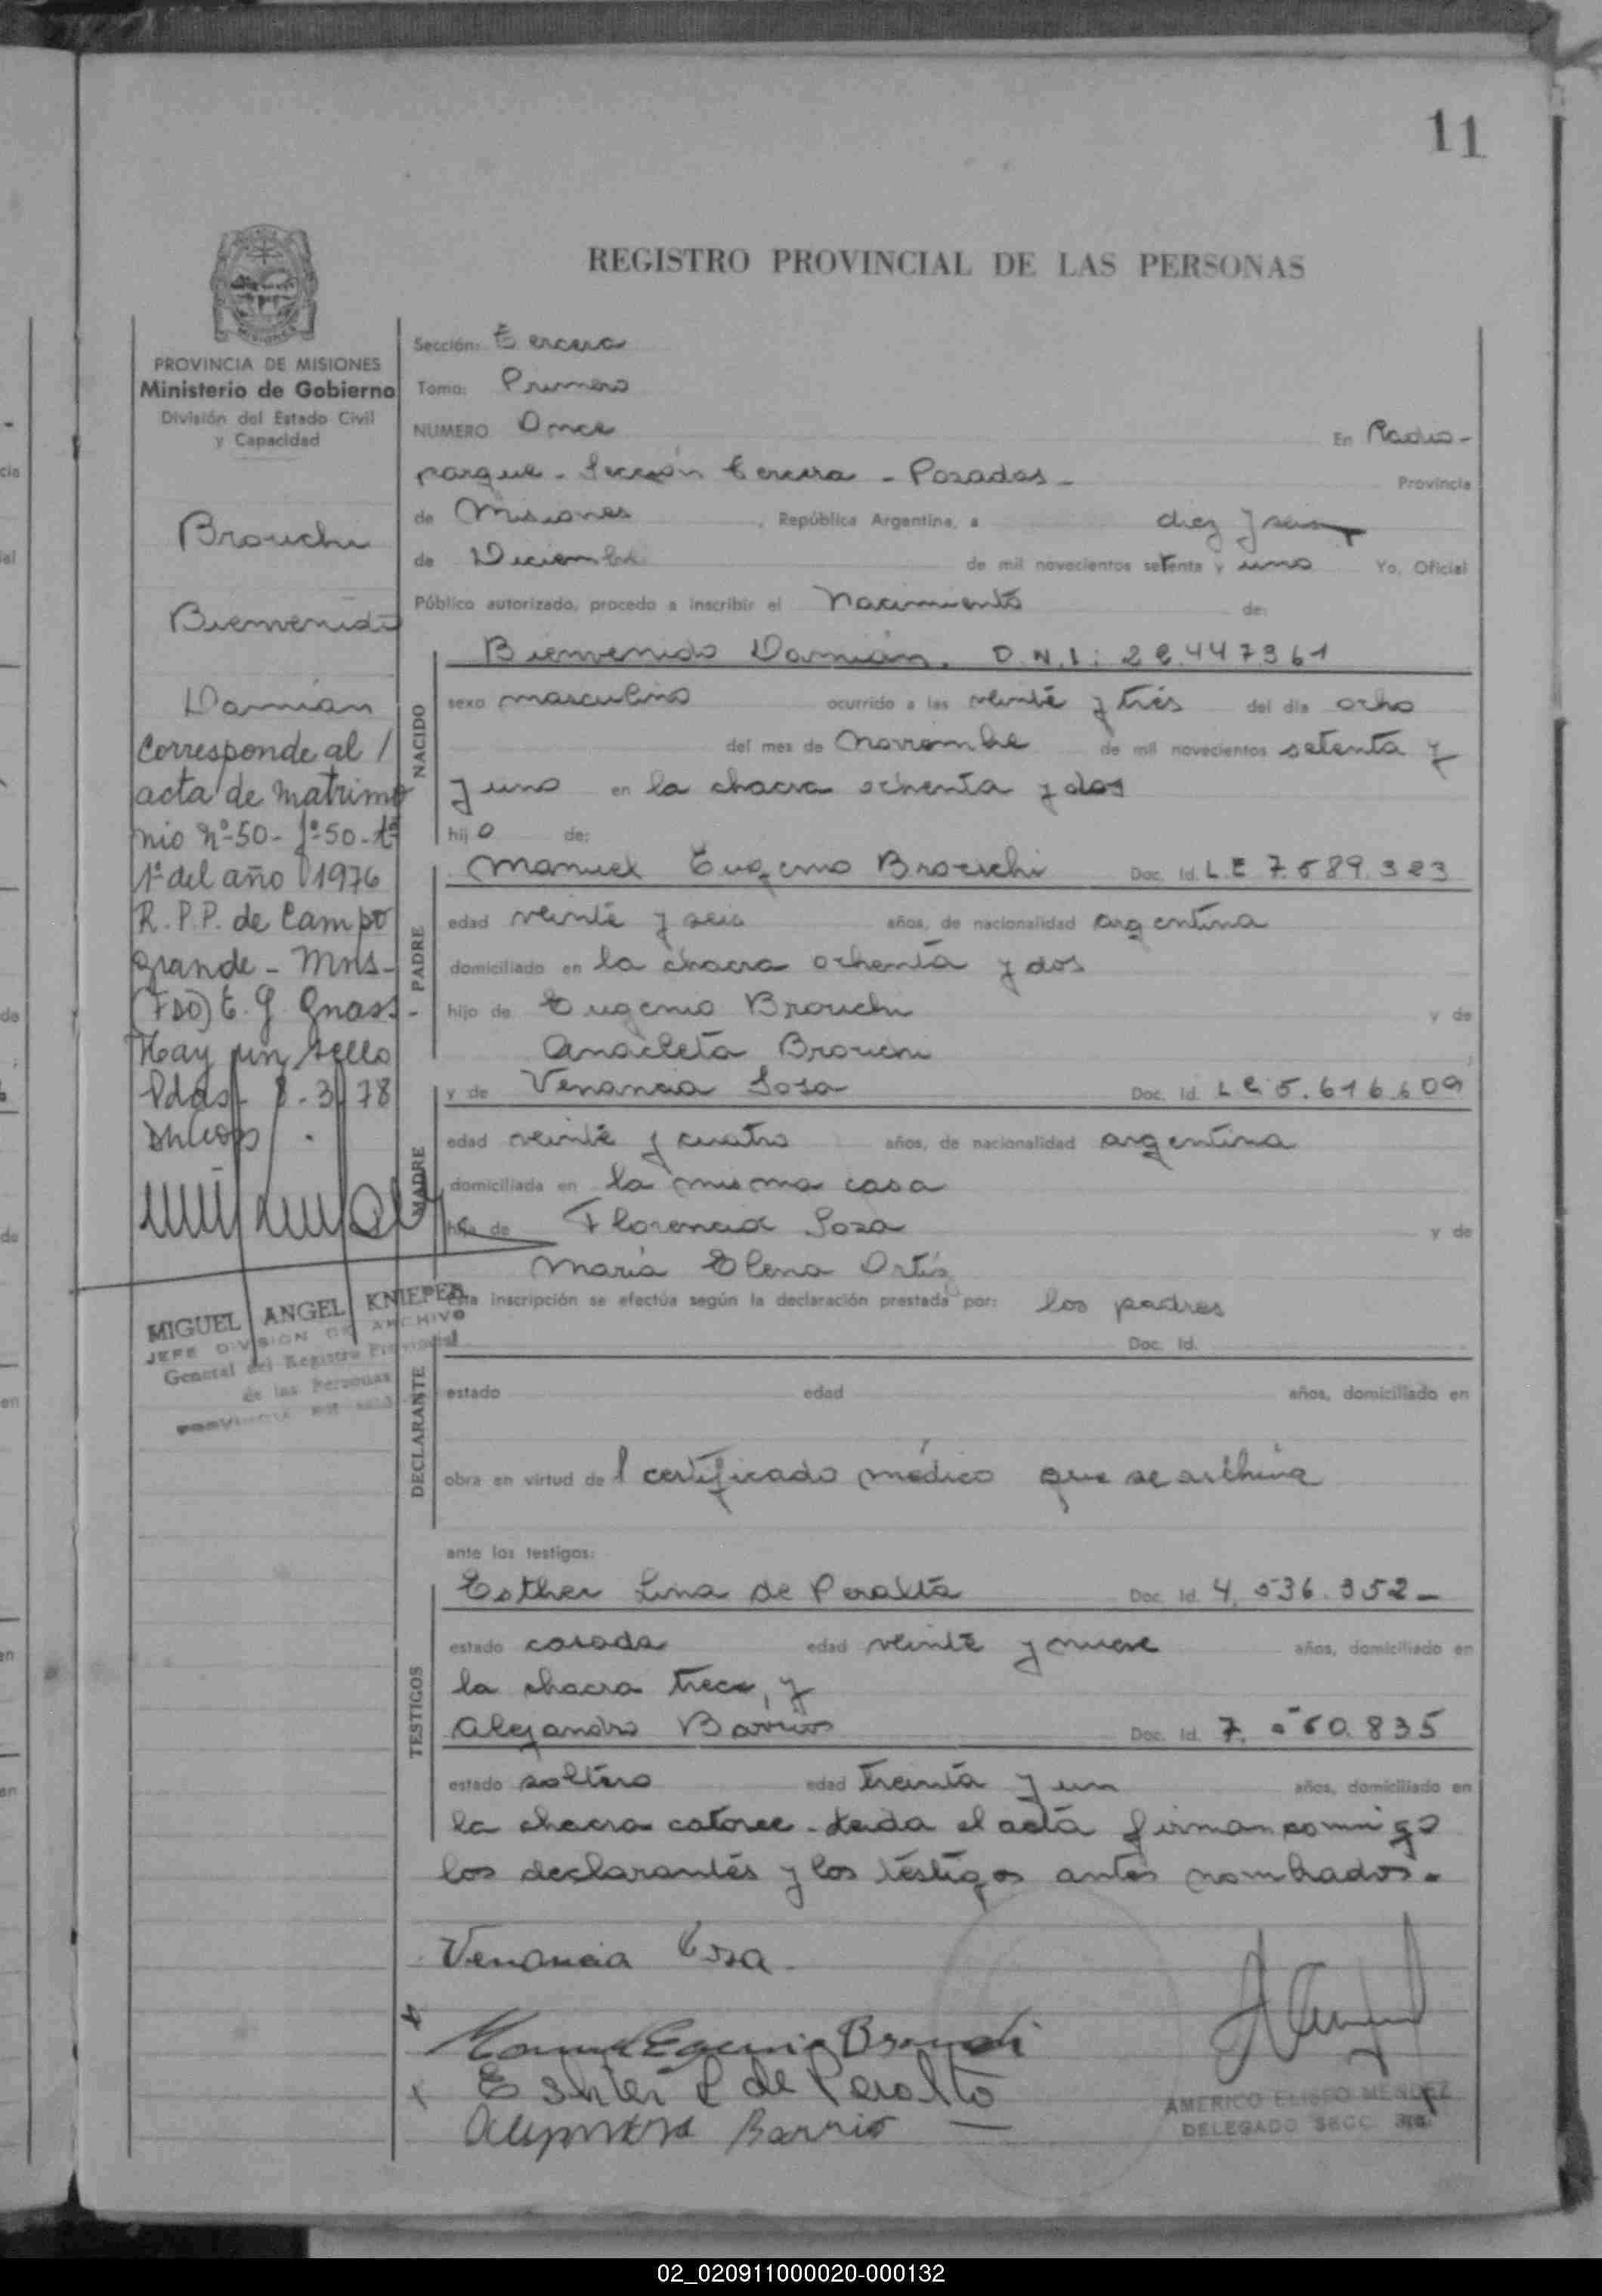 11
REGISTRO PROVINCIAL DE LAS PERSONAS
PROVINCIA DE MISIONES
Ministerio de Gobierno
División del Estado Civil
y Capacidad
Brouchi
Bienvenido
Damián
Corresponde al /
acta de matrimo
nio nº 50 - fº 50 - tº
1º del año 1976
R. P. P. de Campo
grande - Mns -
(FDO) E. G. Gnass -
Hay un sello
Pdas - 8 - 3 - 78
MIGUEL ANGEL KNIEPER
JEFE DIVISION DE ARCHIVO
General del Registro Provincial
de las Personas
Sección: Tercera
Tomo: Primero
NUMERO Once En Radio-
parque - Sección tercera - Posadas - Provincia
de Misiones, República Argentina, a diez y seis
de Diciembre de mil novecientos setenta y uno Yo, Oficial
Público autorizado, procedo a inscribir el Nacimiento de:
NACIDO
Bienvenido Damián. D.N.I: 22.447361
sexo masculino ocurrido a las veinte y trés del día ocho
del mes de noviembre de mil novecientos setenta y
y uno en la chacra ochenta y dos
hij o de:
PADRE
Manuel Eugenio Brouchi Doc. Id. L.E 7.589.323
edad veinte y seis años, de nacionalidad argentina
domiciliado en la chacra ochenta y dos
hijo de Eugenio Brouchi y de
Anacleta Brouchi
MADRE
y de Venancia Sosa Doc. Id. L C 5.616.609
edad veinte y cuatro años, de nacionalidad argentina
domiciliada en la misma casa
hija de Florencia Sosa y de
María Elena Ortís
Esta inscripción se efectúa según la declaración prestada por: los padres
DECLARANTE
Doc. Id.
estado edad años, domiciliado en
obra en virtud de l certificado médico que se archiva
ante los testigos:
TESTIGOS
Esther Lina de Peralta Doc. Id. 4.536.352 -
estado casada edad veinte y nueve años, domiciliado en
la chacra trece, y
Alejandro Barrios Doc. Id. 7. 60.835
estado soltero edad treinta y un años, domiciliado en
la chacra catorce - Leida el acta firman conmigo
los declarantes y los testigos antes nombrados.
Venancia Sosa
Manuel Egenio Brouchi
Eshter L de Peralta
Alejandro Barrio
AMERICO ELISEO MENDEZ
DELEGADO SECC. 3ra.
02_020911000020-000132